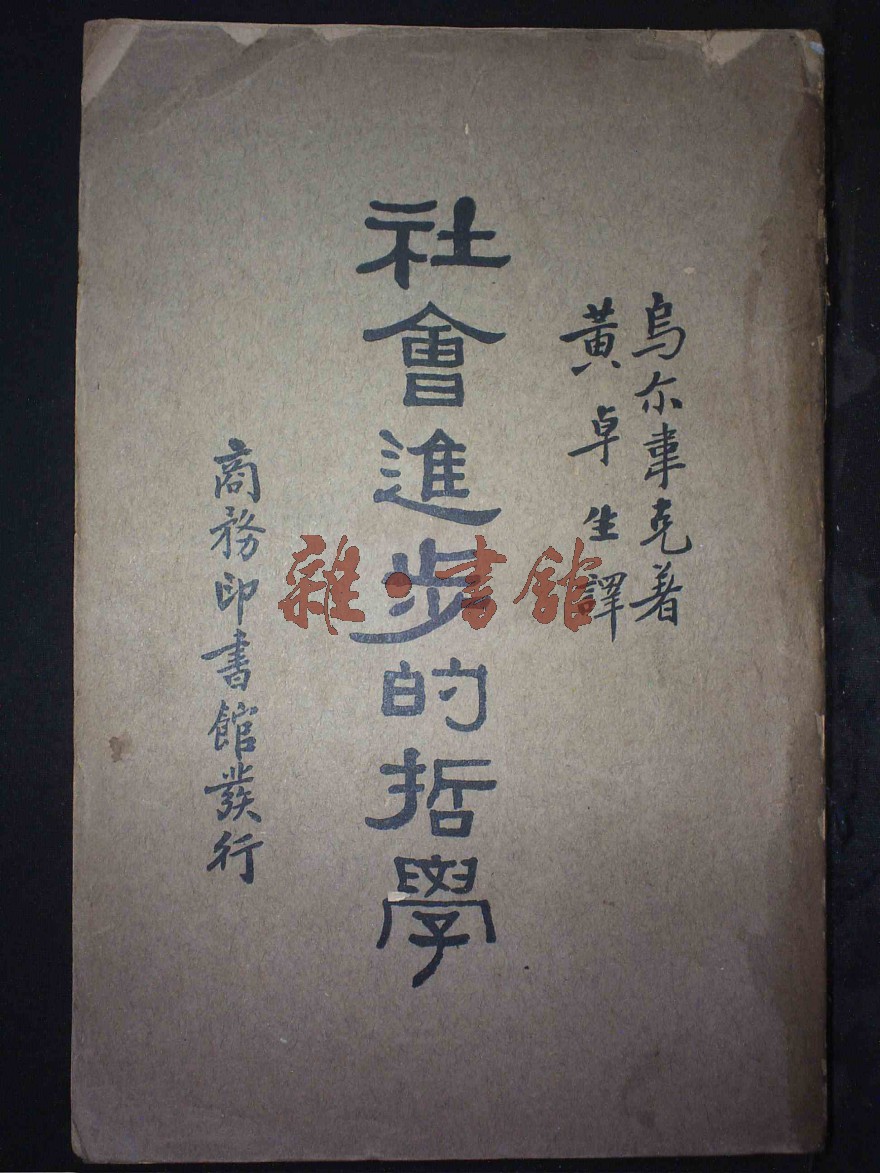 烏尔韋克著
黃卓生譯
社會進步的哲學
商務印書館發行
雜·書館